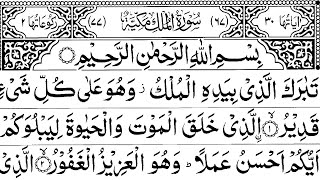 اٰیَاتُهَا ٣٠ (٦٧) سُوْرَةُ الْمُلْكِ مَكِّيَّةٌ (٧٧) رُكُوْعَاتُهَا ٢
بِسْمِ اللّٰهِ الرَّحْمٰنِ الرَّحِيْمِ
تَبٰرَكَ الَّذِيْ بِيَدِهِ الْمُلْكُ ز وَهُوَ عَلٰى كُلِّ شَيْءٍ
قَدِيْرُ ۙ﴿١﴾ الَّذِيْ خَلَقَ الْمَوْتَ وَالْحَيٰوةَ لِيَبْلُوَكُمْ
اَيُّكُمْ اَحْسَنُ عَمَلًا ؕ وَهُوَ الْعَزِيْزُ الْغَفُوْرُ ۙ﴿٢﴾ الَّذِيْ